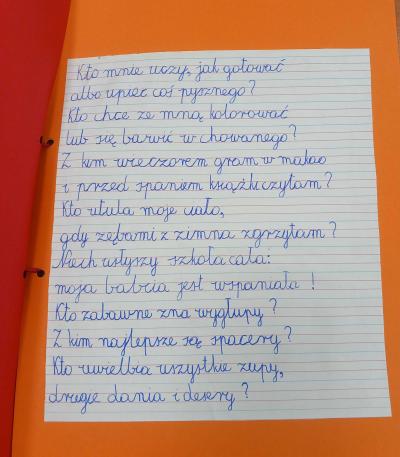 Kto mnie uczy, jak gotować
albo upiec coś pysznego?
Kto chce ze mną kolorować
lub się bawić w chowanego?
Z kim wieczorem gram w makao
i przed spaniem książki czytam?
Kto utula moje ciało,
gdy zębami z zimna zgrzytam?
Niech usłyszy szkoła cała:
moja babcia jest wspaniała!
Kto zabawne zna wygłupy?
Z kim najlepsze są spacery?
Kto uwielbia wszystkie zupy,
drugie dania i desery?